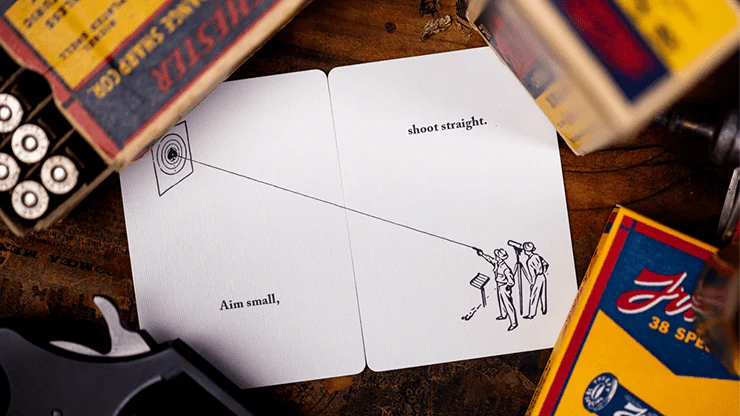 CHESTER
ANCE SHARP COR.
Aim small,
shoot straight.
38 SPE